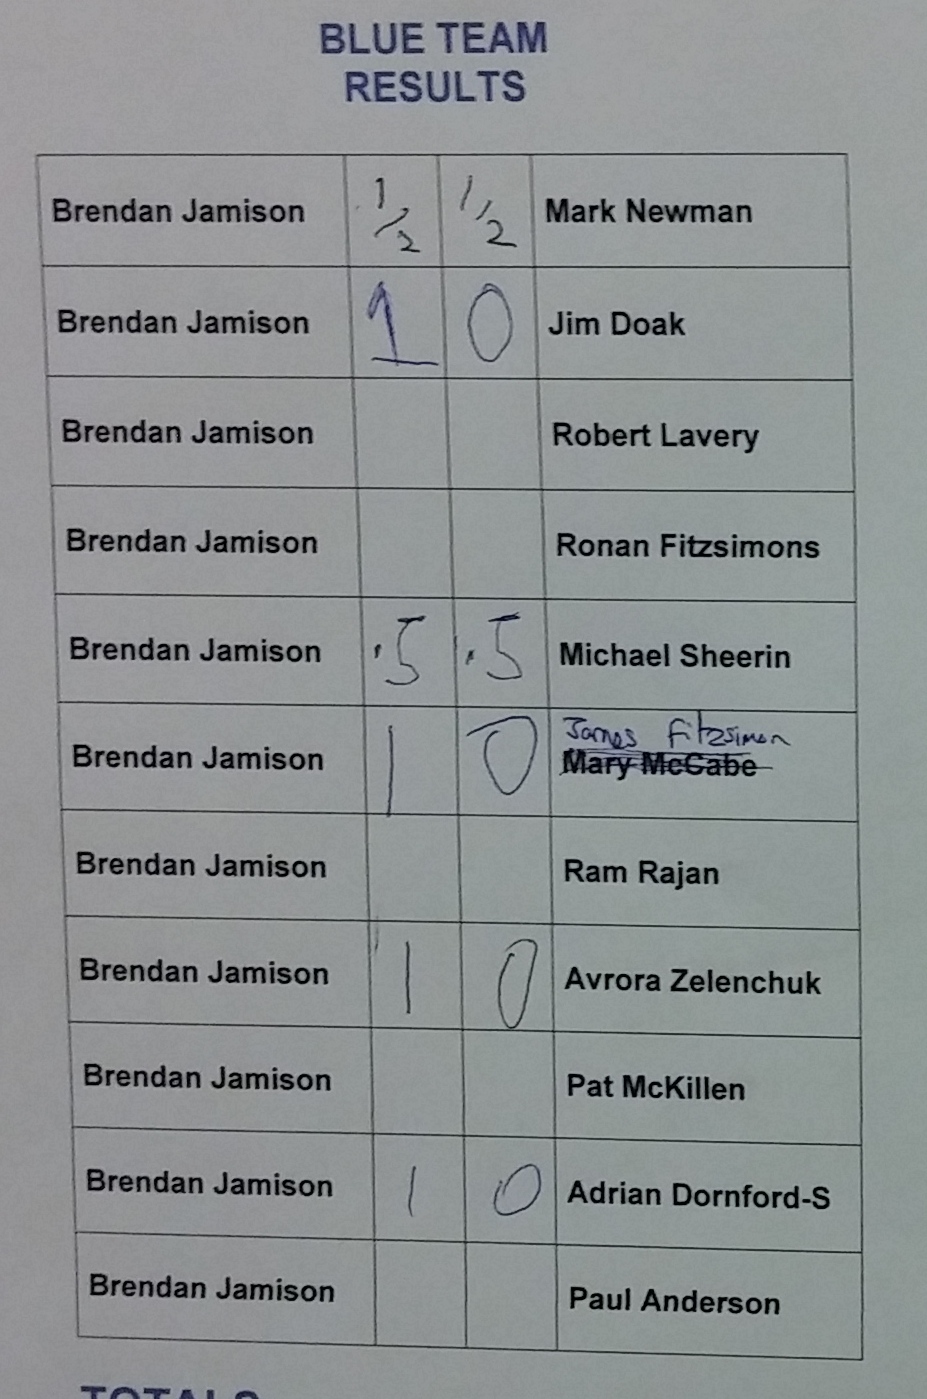 BLUE TEAM
RESULTS
Brendan Jamison 1/2 1/2 Mark Newman
Brendan Jamison 1 0 Jim Doak
Brendan Jamison Robert Lavery
Brendan Jamison Ronan Fitzsimons
Brendan Jamison .5 .5 Michael Sheerin
James Fitzsimon
Brendan Jamison 1 0 Mary McCabe
Brendan Jamison Ram Rajan
Brendan Jamison 1 0 Avrora Zelenchuk
Brendan Jamison Pat McKillen
Brendan Jamison 1 0 Adrian Dornford-S
Brendan Jamison Paul Anderson
TOTALS